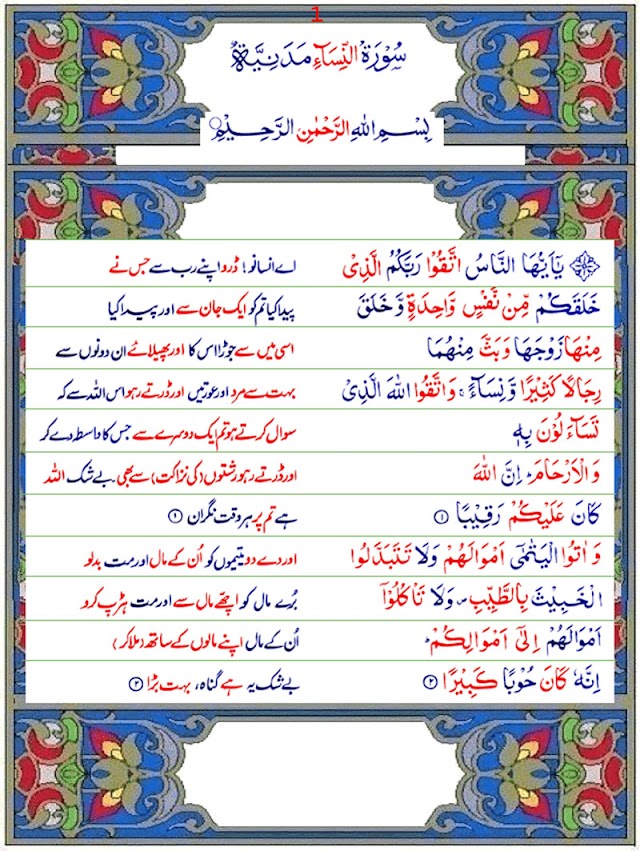 1
سُوْرَةُ النِّسَآءِ مَدَنِيَّةٌ
بِسْمِ اللهِ الرَّحْمٰنِ الرَّحِيْمِ
يٰۤاَيُّهَا النَّاسُ اتَّقُوْا رَبَّكُمُ الَّذِىْ اے انسانو! ڈرو اپنے رب سے جس نے
خَلَقَكُمْ مِّنْ نَّفْسٍ وَّاحِدَةٍ وَّخَلَقَ پیدا کیا تم کو ایک جان سے اور پیدا کیا
مِنْهَا زَوْجَهَا وَبَثَّ مِنْهُمَا اسی میں سے جوڑا اس کا اور پھیلائے ان دونوں سے
رِجَالًا كَثِيْرًا وَّنِسَآءً ۚ وَاتَّقُوا اللهَ الَّذِىْ بہت سے مرد اور عورتیں اور ڈرتے رہو اس اللہ سے کہ
تَسَآءَلُوْنَ بِهٖ سوال کرتے ہو تم ایک دوسرے سے جس کا واسطہ دے کر
وَالْاَرْحَامَ ؕ اِنَّ اللهَ اور ڈرتے رہو رشتوں (کی نزاکت) سے بھی۔ بے شک اللہ
كَانَ عَلَيْكُمْ رَقِيْبًا ۱ ہے تم پر ہر وقت نگران ۱
وَاٰتُوا الْيَتٰمٰٓى اَمْوَالَهُمْ وَلَا تَتَبَدَّلُوا اور دے دو یتیموں کو اُن کے مال اور مت بدلو
الْخَبِيْثَ بِالطَّيِّبِ ۪ وَلَا تَاْكُلُوْۤا بُرے مال کو اچھّے مال سے اور مت ہڑپ کرو
اَمْوَالَهُمْ اِلٰٓى اَمْوَالِكُمْ ؕ اُن کے مال اپنے مالوں کے ساتھ (ملا کر)
اِنَّهٗ كَانَ حُوْبًا كَبِيْرًا ۲ بے شک یہ ہے گناہ، بہت بڑا ۲